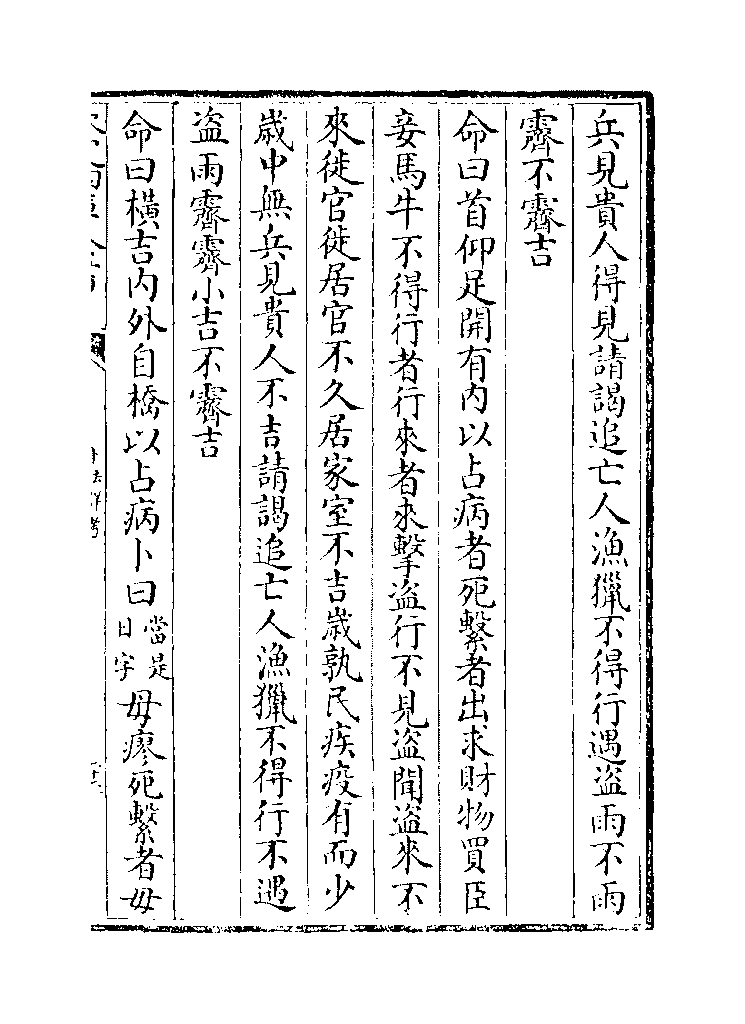 兵見貴人得見請謁追亡人漁獵不得行遇盜雨不雨
霽不霽吉
命曰首仰足開有内以占病者死繫者出求財物買臣
妾馬牛不得行者行來者來擊盜行不見盜聞盜來不
來徙官徙居官不久居家室不吉歲孰民疾疫有而少
歲中無兵見貴人不吉請謁追亡人漁獵不得行不遇
盜雨霽霽小吉不霽吉
命曰橫吉内外自橋以占病卜曰當是日字毋瘳死繫者毋